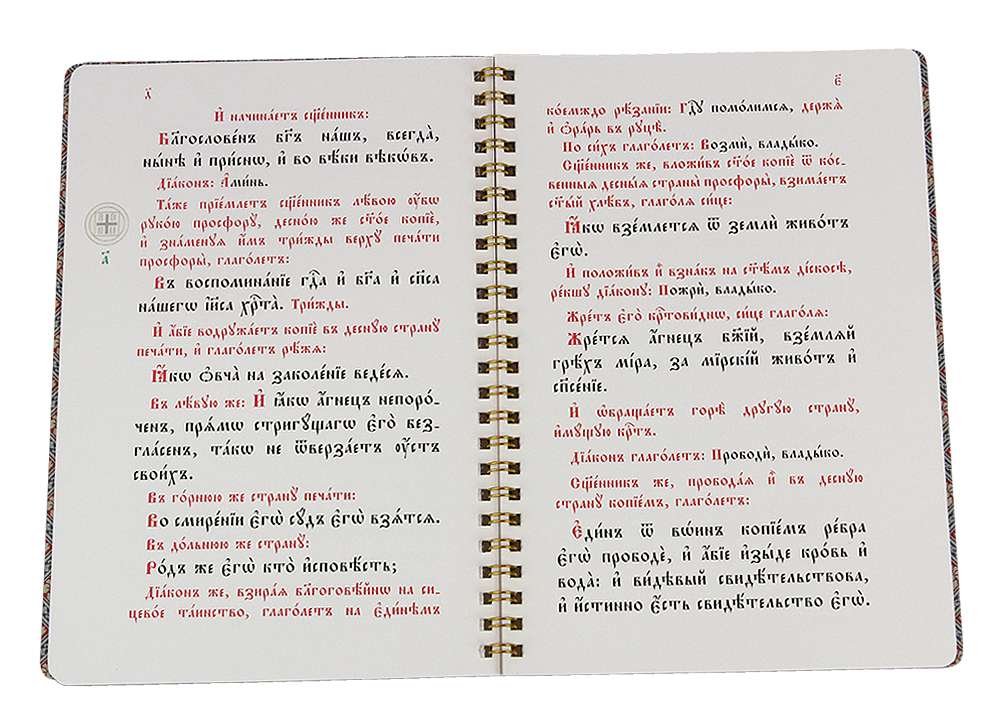 д҃
И҆ начина́етъ сщ҃е́нникъ:
Бл҃гослове́нъ бг҃ъ на́шъ, всегда̀,
ны́нѣ и҆ при́снѡ, и҆ во вѣ́ки вѣкѡ́въ.
Дїа́конъ: А҆ми́нь.
Та́же прїе́млетъ сщ҃е́нникъ лѣ́вою ѹ҆́бѡ
руко́ю просфорꙋ̀, десно́ю же ст҃о́е копїѐ,
и҆ зна́менꙋѧ и҆́мъ три́жды верхꙋ̀ печа́ти
просфоры̀, глаго́летъ:
Въ воспомина́нїе гд҇а и҆ бг҃а и҆ сп҃са
на́шегѡ і҆и҃са хрⷭ҇та̀. Три́жды.
И҆ а҆́бїе водрꙋжа́етъ копїѐ въ деснꙋ́ю странꙋ̀
печа́ти, и҆ глаго́летъ рѣ́жѧ:
Ꙗ҆́кѡ ѻ҆вча̀ на заколе́нїе веде́сѧ.
Въ лѣ́вꙋю же: И҆ ꙗ҆́кѡ а҆́гнецъ непоро́-
ченъ, прѧ́мѡ стригꙋ́щагѡ є҆го̀ без-
гла́сенъ, та́кѡ не ѿверза́етъ ѹ҆́стъ
свои́хъ.
Въ го́рнюю же странꙋ̀ печа́ти:
Во смире́нїи є҆гѡ̀ сꙋ́дъ є҆гѡ̀ взѧ́тсѧ.
Въ до́льнюю же странꙋ̀:
Ро́дъ же є҆гѡ̀ кто̀ и҆сповѣ́сть;
Дїа́конъ же, взира́ѧ бл҃гоговѣ́йнѡ на си-
цево́е та́инство, глаго́летъ на є҆ди́нѣмъ
а҃
є҃
ко́емждо рѣ́занїи: Гдⷭ҇ꙋ помо́лимсѧ, держѧ̀
и҆ ѻ҆ра́рь въ рꙋцѣ̀.
По си́хъ глаго́летъ: Возмѝ, влады́ко.
Сщ҃е́нникъ же, вложи́въ ст҃о́е копїѐ ѿ ко́с-
венныѧ десны́ѧ страны̀ просфоры̀, взима́етъ
ст҃ы́й хлѣ́бъ, глаго́лѧ си́це:
Ꙗ҆́кѡ взе́млетсѧ ѿ землѝ живо́тъ
є҆гѡ̀.
И҆ положи́въ и҆̀ взна́къ на ст҃ѣ́мъ ді́скосѣ,
ре́кшꙋ дїа́конꙋ: Пожрѝ, влады́ко.
Жре́тъ є҆го̀ крⷭ҇тови́днѡ, си́це глаго́лѧ:
Жре́тсѧ а҆́гнецъ бж҃їй, взе́млѧй
грѣ́хъ мі́ра, за мїрскі́й живо́тъ и҆
сп҃се́нїе.
И҆ ѡ҆браща́етъ горѣ̀ дрꙋгꙋ́ю странꙋ̀,
и҆мꙋ́щꙋю крⷭ҇тъ.
Дїа́конъ глаго́летъ: Прободѝ, влады́ко.
Сщ҃е́нникъ же, пробода́ѧ и҆̀ въ деснꙋ́ю
странꙋ̀ копїе́мъ, глаго́летъ:
Є҆ди́нъ ѿ во́инъ копїе́мъ ре́бра
є҆гѡ̀ прободѐ, и҆ а҆́бїе и҆зы́де кро́вь и҆
вода̀: и҆ ви́дѣвый свидѣ́тельствова,
и҆ и҆́стинно є҆́сть свидѣ́тельство є҆гѡ̀.